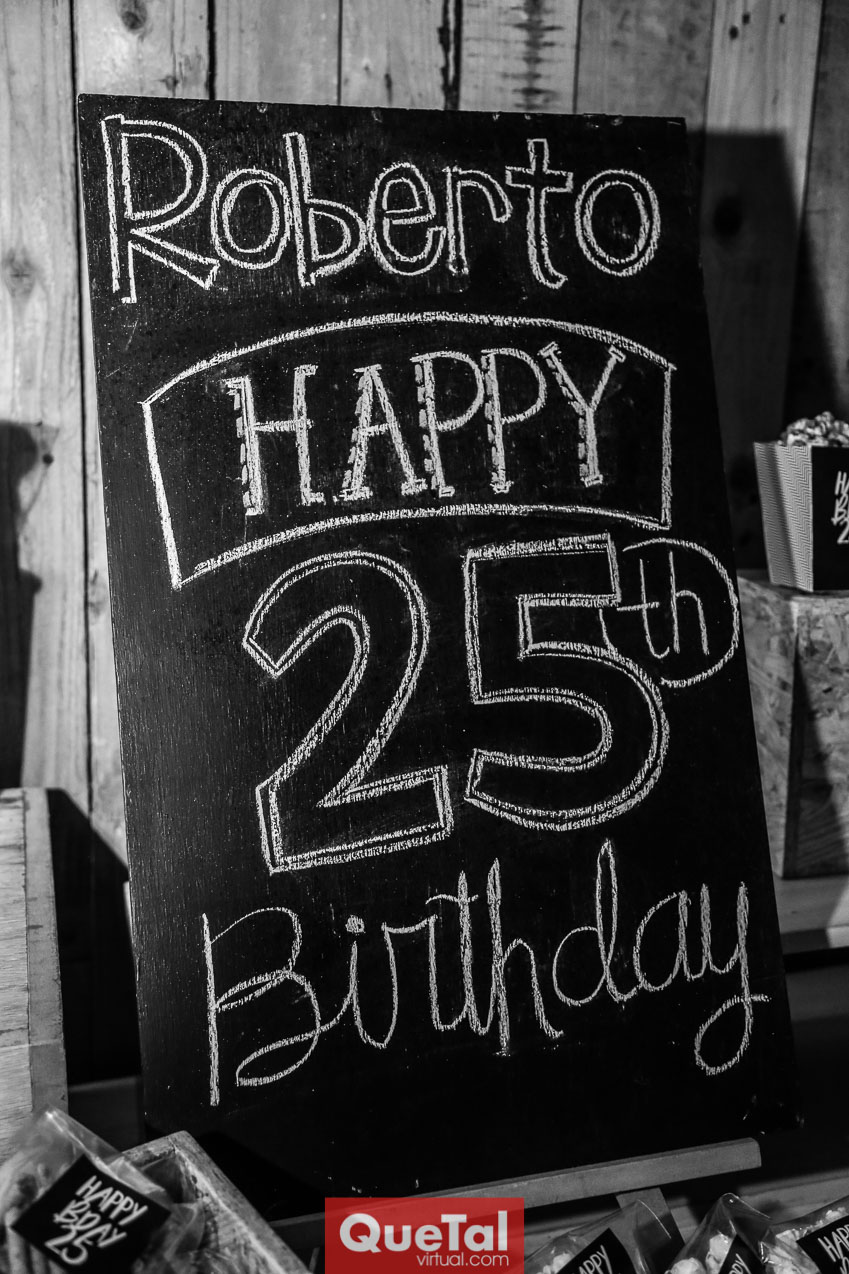 Roberto
HAPPY
25th
Birthday
HAPPY
BDAY
25
HAPPY
HAPPY
QueTal
virtual.com